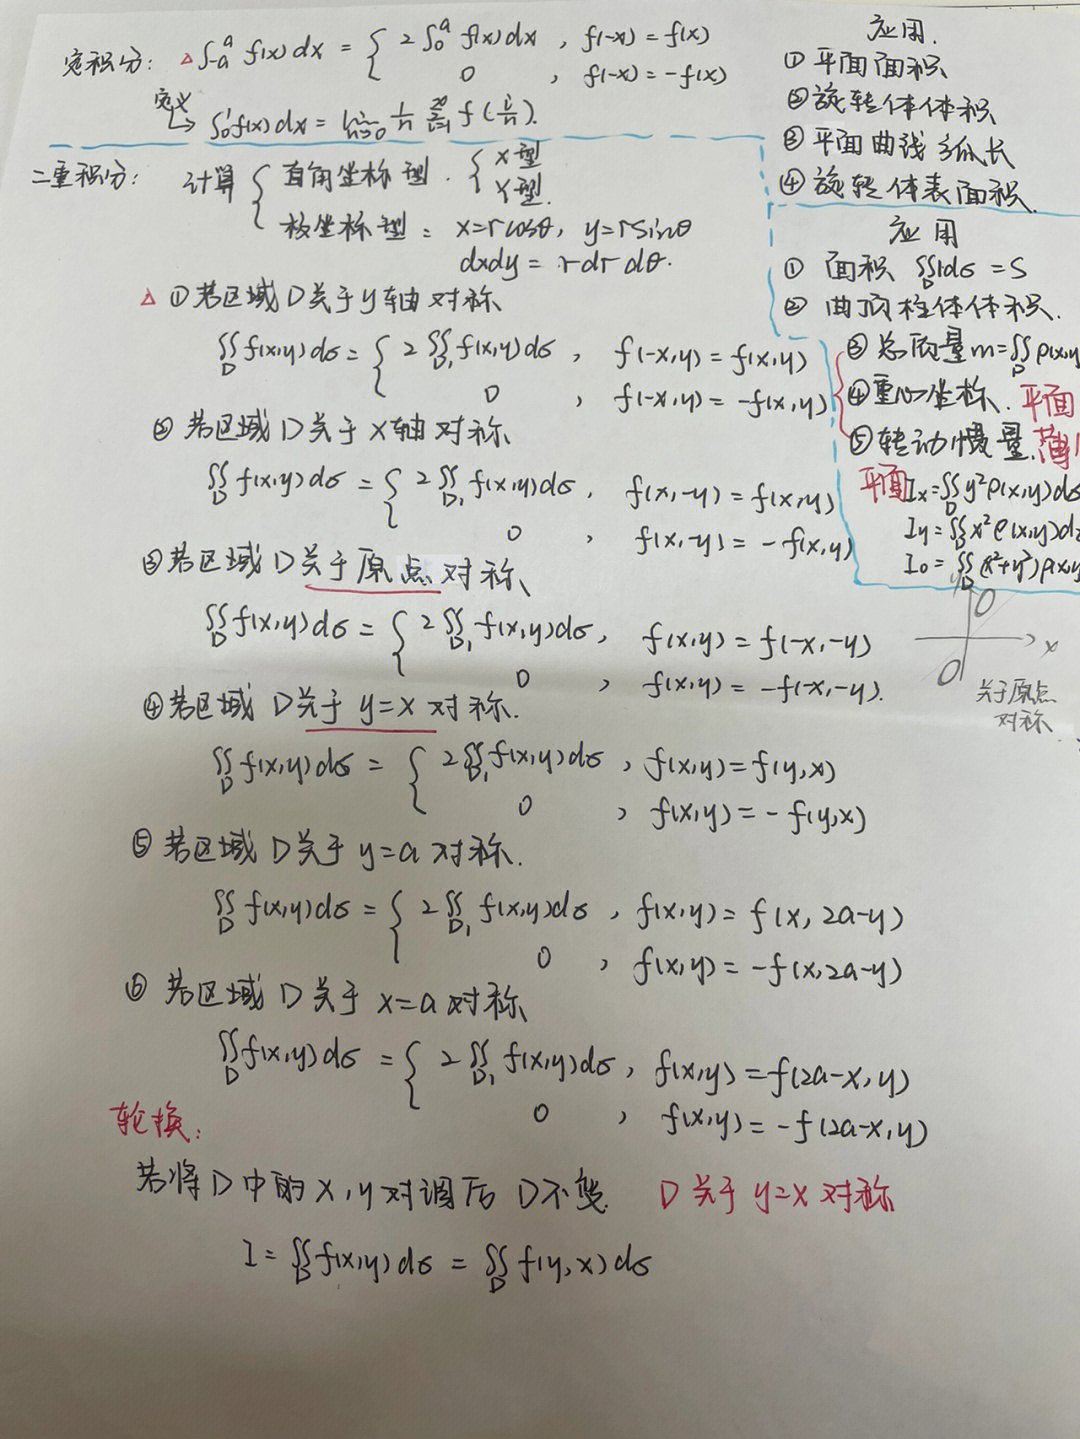 定积分: △ ∫_{-a}^{a} f(x)dx = { 2∫_0^a f(x)dx , f(-x) = f(x)
0 , f(-x) = -f(x)
定义
↳ ∫_0^1 f(x)dx = lim_{n→0} 1/n Σ_{i=1}^{∞} f(i/n).
应用.
① 平面面积
② 旋转体体积
③ 平面曲线弧长
④ 旋转体表面积.
二重积分: 计算 { 直角坐标型. { X型
Y型.
极坐标型: x=rcosθ, y=rsinθ
dxdy = rdrdθ.
应用
① 面积 ∬_D 1dσ = S
② 曲顶柱体体积.
③ 总质量 m=∬_D ρ(x,y
④ 重心坐标. 平面
⑤ 转动惯量. 薄
平面 Ix=∬_D y²ρ(x,y)dσ
Iy=∬_D x²ρ(x,y)d
Io=∬_D (x²+y²)ρ(x,y
△ ① 若区域D关于y轴对称
∬_D f(x,y)dσ = { 2∬_{D₁} f(x,y)dσ , f(-x,y) = f(x,y)
0 , f(-x,y) = -f(x,y)
② 若区域D关于X轴对称
∬_D f(x,y)dσ = { 2∬_{D₁} f(x,y)dσ , f(x,-y) = f(x,y)
0 , f(x,-y) = -f(x,y)
③ 若区域D关于原点对称
∬_D f(x,y)dσ = { 2∬_{D₁} f(x,y)dσ , f(x,y) = f(-x,-y)
0 , f(x,y) = -f(-x,-y).
y
x
关于原点
对称
④ 若区域D关于y=x对称.
∬_D f(x,y)dσ = { 2∬_{D₁} f(x,y)dσ , f(x,y) = f(y,x)
0 , f(x,y) = -f(y,x)
⑤ 若区域D关于y=a对称.
∬_D f(x,y)dσ = { 2∬_{D₁} f(x,y)dσ , f(x,y) = f(x, 2a-y)
0 , f(x,y) = -f(x,2a-y)
⑥ 若区域D关于x=a对称
∬_D f(x,y)dσ = { 2∬_{D₁} f(x,y)dσ , f(x,y) = f(2a-x,y)
0 , f(x,y) = -f(2a-x,y)
轮换:
若将D中的x,y对调后D不变. D关于y=x对称
I = ∬_D f(x,y)dσ = ∬_D f(y,x)dσ